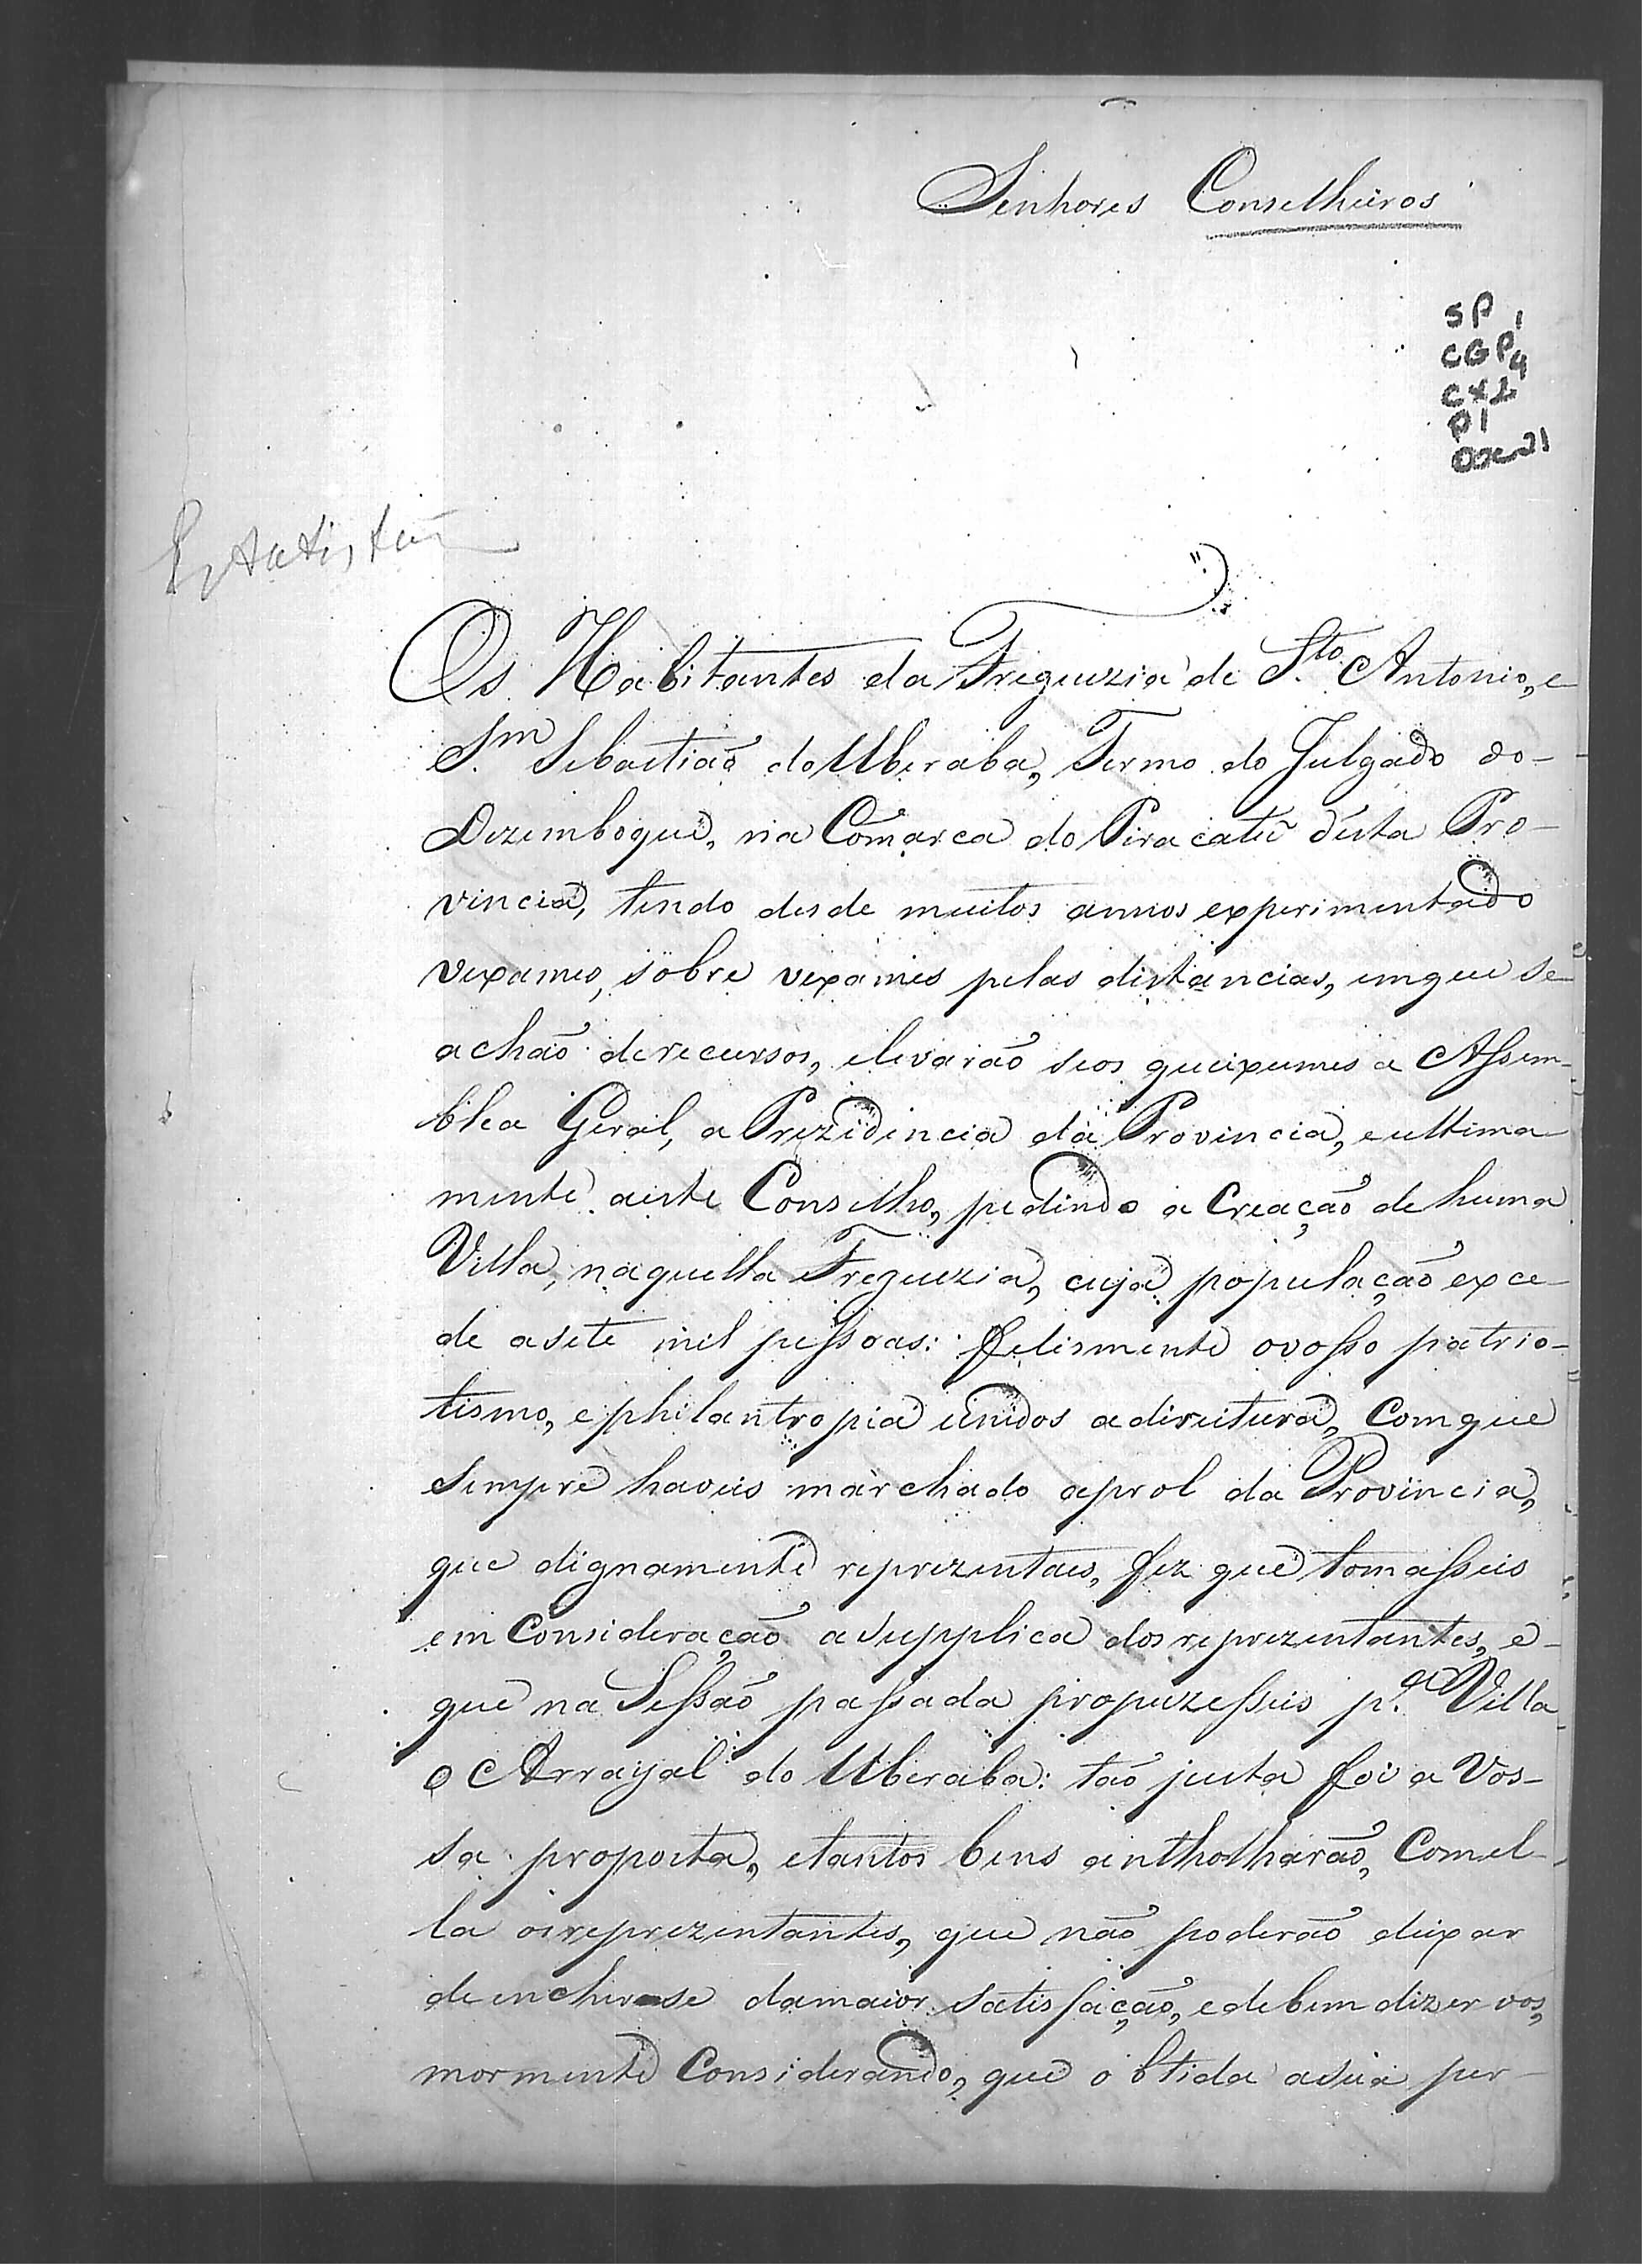 Senhores Conselheiros
SP 1
CGP 4
CX 2
P1
Doc 21
Estatistica
Os Habitantes da Freguezia de S.to Antonio, e
S.m Sebastiaõ do Uberaba, Termo do Julgado do
Dezemboque, na Comarca do Piracatú d'esta Pro-
vincia, tendo desde muitos annos experimentado
vexames, sobre vexames pelas distancias, emque se
achaõ derecursos, elevaraõ seos queixumes a Assem-
blea Geral, a Prezidencia da Provincia, eultima
mente aeste Conselho, pedindo a Creaçaõ de huma
Villa, naquella Freguezia, cuja populaçaõ exce-
de asete mil pessoas: felismente ovosso patrio-
tismo, ephilantropia unidos adireitura, Comque
sempre haveis marchado aprol da Provincia,
que dignamente reprezentaes, fez que tomasseis
em Consideraçaõ asupplica dosreprezentantes, e-
que na Sessaõ passada propuzesseis p.a Villa
o Arrayal do Uberaba: taõ justa foi a Vos-
sa proposta, etantos bens antholharaõ, Comel-
la osreprezentantes, que naõ poderaõ deixar
deencher-se damaior satisfaçaõ, edebemdizer vos,
mormente Considerando, que obtida asua per-